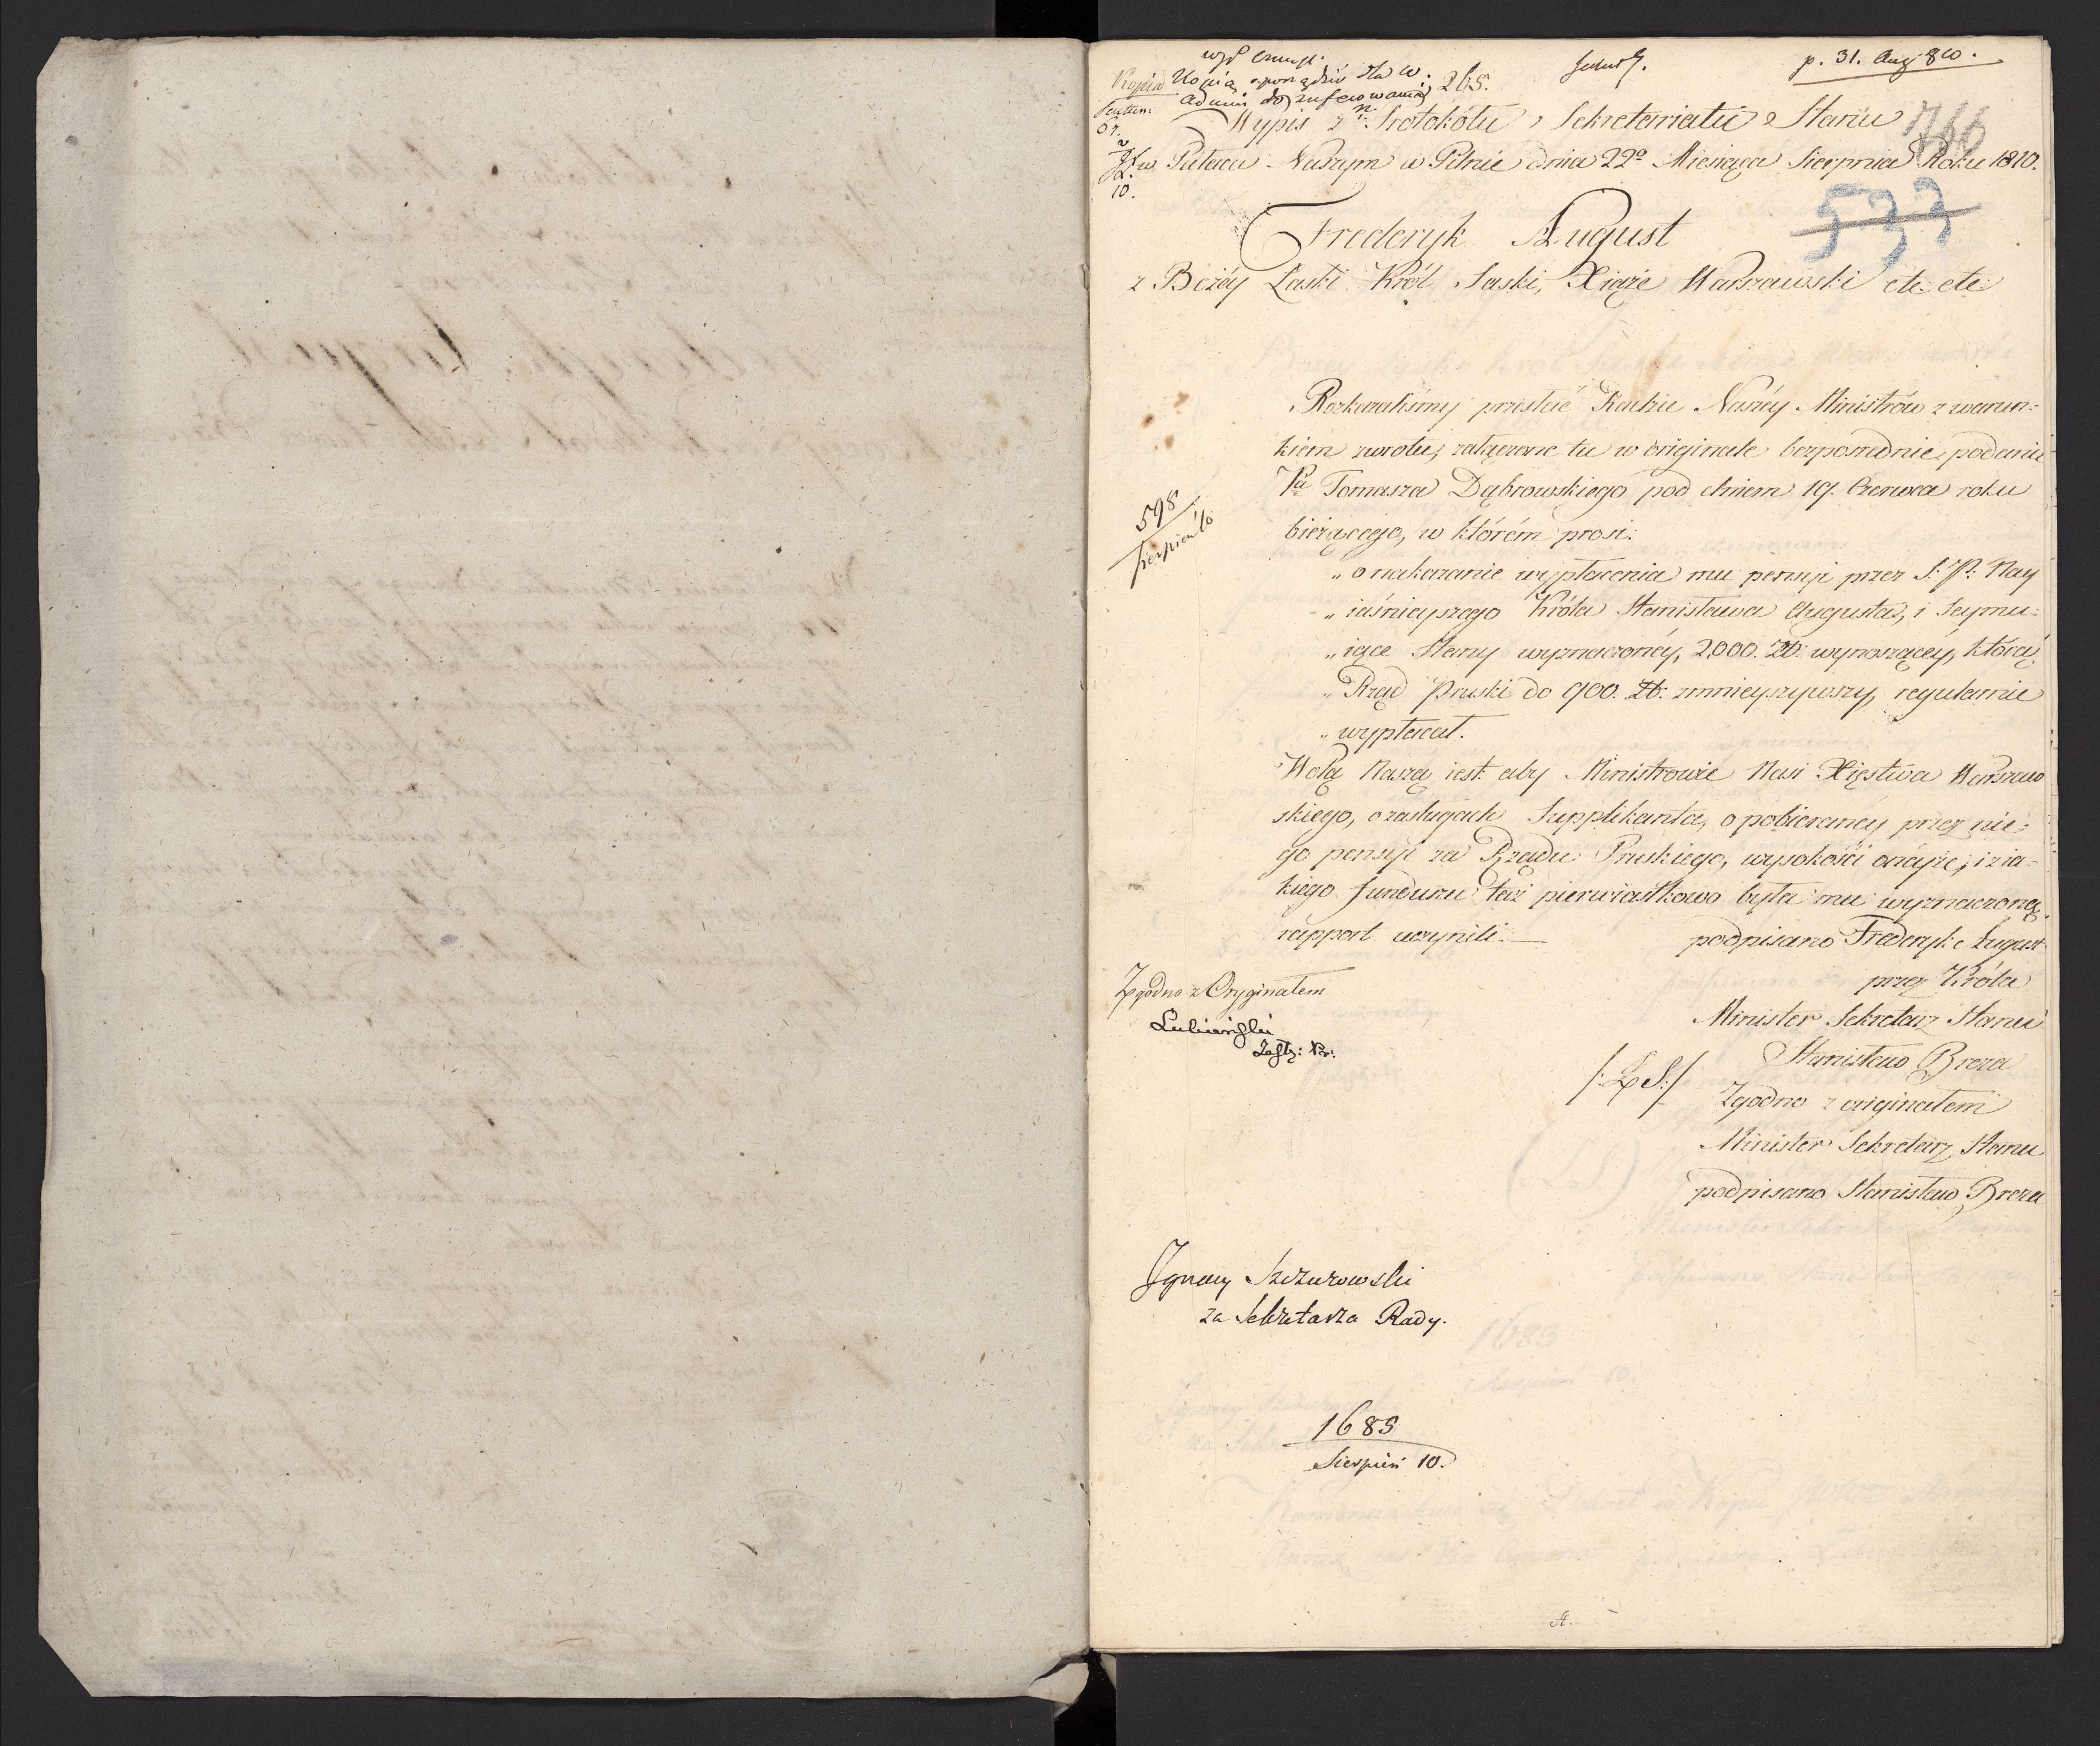 p. 31. Aug 810.
Kopia Kopią sporządzić dla w.
265.
Wypis z Protokółu Sekretariatu Stanu
766
w Pałacu Naszym w Pilnie dnia 22º Miesiąca Sierpnia Roku 1810.
533
Frederyk August
z Bożéy Łaski Król Saski, Xiąże Warszawski etc etc
Rozkazaliśmy przesłać Radzie Naszéy Ministrów z warun=
kiem zwrotu, załączone tu w originale bezposrednie podanie
Pa Tomasza Dąbrowskiego pod dniem 19. Czerwca roku
598
Sierpień 10
bieżącego, w którém prosi:
„ o nakazanie wypłacenia mu pensyi przez S: P: Nay
„ iaśnieyszego Króla Stanisława Augusta, i Seymu=
„ iące Stany wyznaczonéy, 2,000. Zł: wynoszącéy, którą
„ Rząd Pruski do 900. Zł: zmnieyszywszy, regularnie
„ wypłacał.
Wolą Naszą iest aby Ministrowie Nasi Xięstwa Warszaw
skiego, o zasługach Supplikanta, o pobieranéy przez nie=
go pensyi za Rządu Pruskiego, wysokości onéyże, i z ia=
kiego funduszu taż pierwiastkowo była mu wyznaczoną,
rapport uczynili. —
podpisano Frederyk August
przez Króla
Zgodno z Oryginałem
Minister Sekretarz Stanu
Lubieński
Zastę: Pr:
Stanisław Breza
/: L S :/
Zgodno z originałem
Minister Sekretarz Stanu
podpisano Stanisław Breza
Ignacy Szczurowski
za Sekretarza Rady.
1683
Sierpień 10.